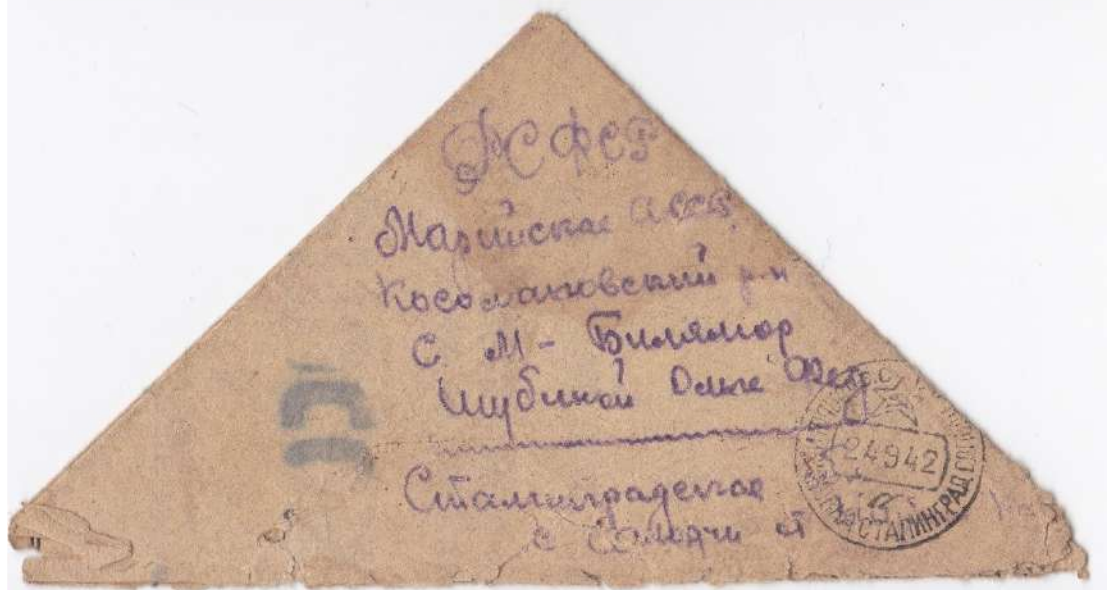 РСФСР
Марийская АССР
Косолаповский р-н
С. М-Билямор
Шубиной Ольге
Сталинградская
с
24942
СТАЛИНГРАД